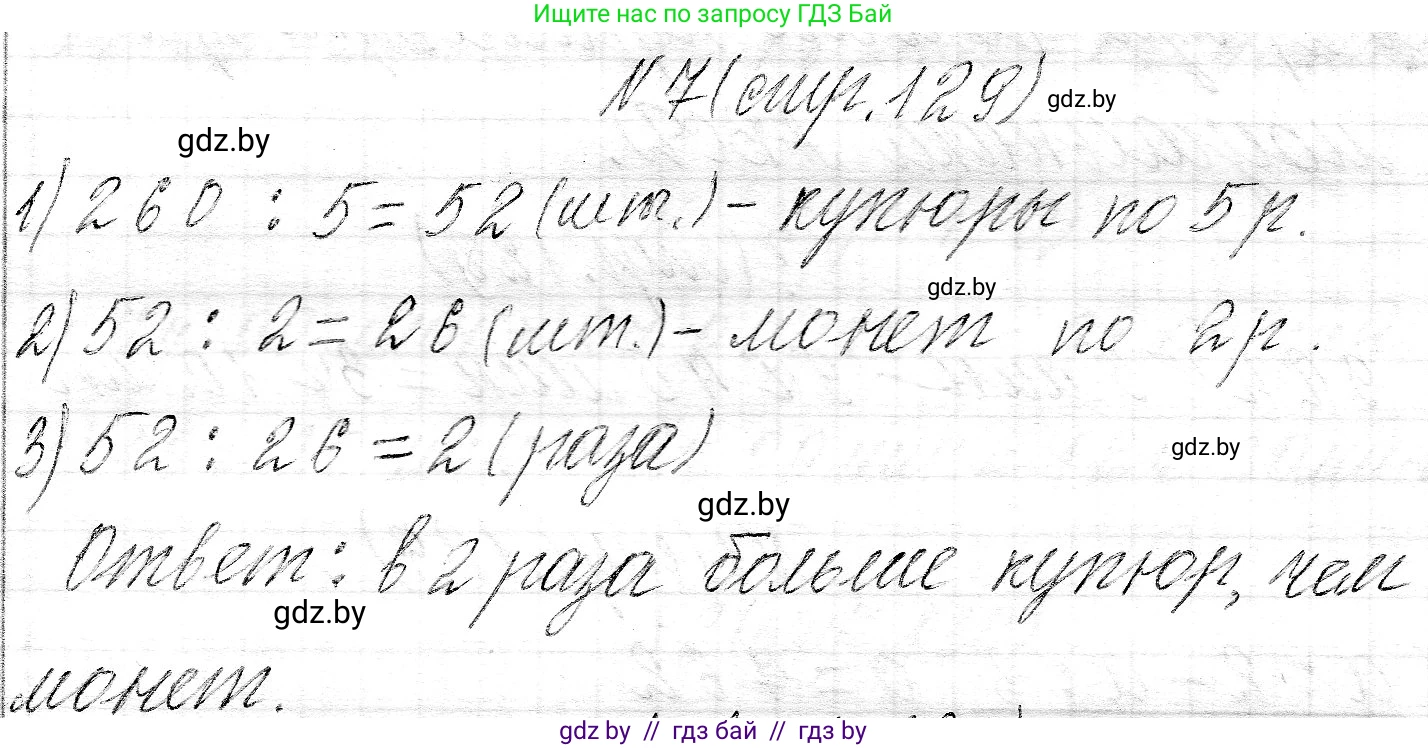 Ищите нас по запросу ГДЗ Бай
N 7 (стр. 129) gdz.by
gdz.by
1) 260 : 5 = 52 (шт.) - купюры по 5 р.
gdz.by
2) 52 : 2 = 26 (шт.) - монет по 2 р.
3) 52 : 26 = 2 (раза)
gdz.by
gdz.by
Ответ: в 2 раза больше купюр, чем
gdz.by
монет.
gdz by // гдз бай // гдз by